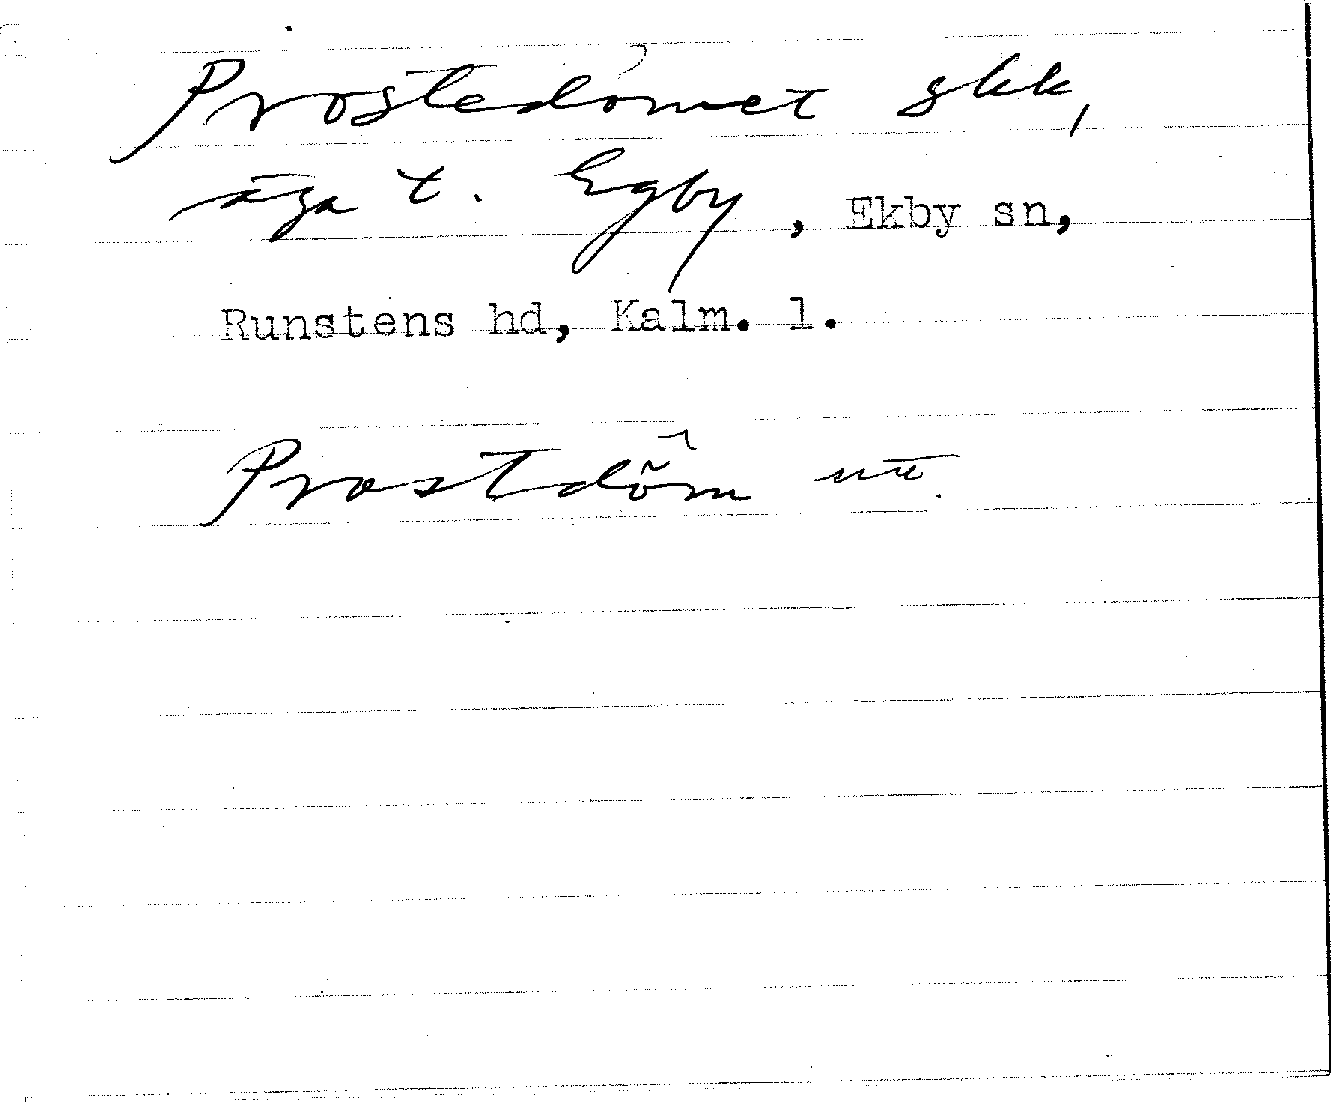 Prostedömet skk,
äga t. Egby, Ekby sn,
Runstens hd, Kalm. l.
Prostdöm